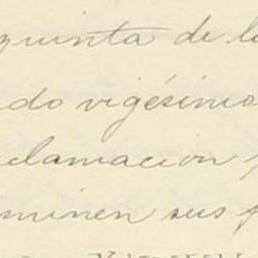 quinta de l
do vigésimo
clamacion
minen sus f